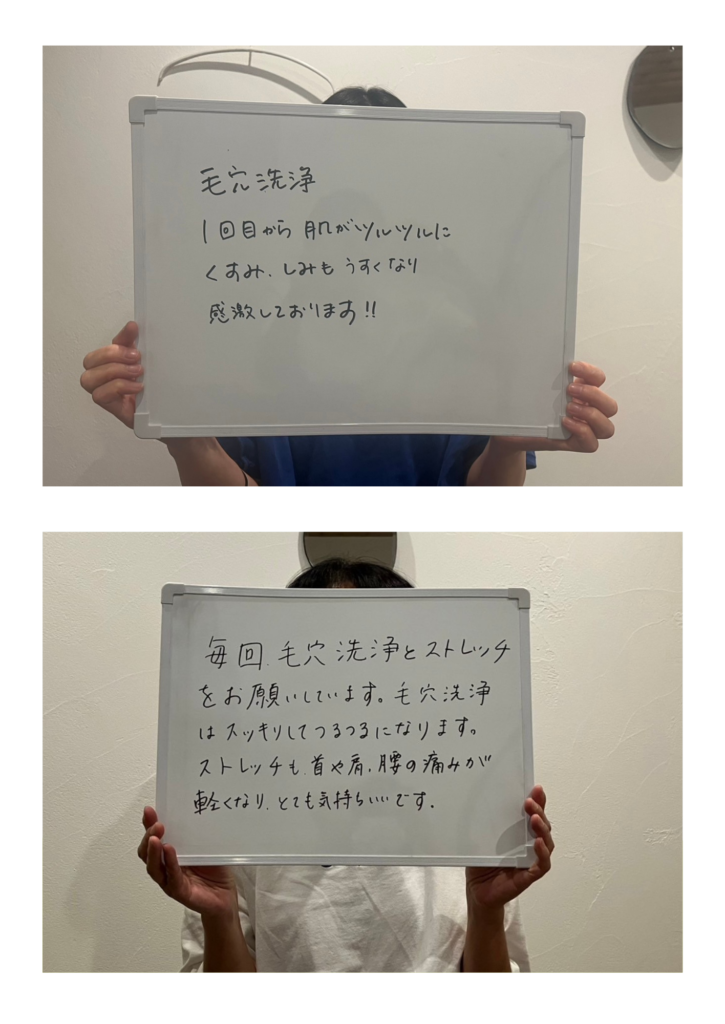 毛穴洗浄
1回目から肌がツルツルに
くすみ、しみもうすくなり
感激しております!!
毎回、毛穴洗浄とストレッチ
をお願いしています。毛穴洗浄
はスッキリしてつるつるになります。
ストレッチも、首や肩、腰の痛みが
軽くなり、とても気持ちいいです。